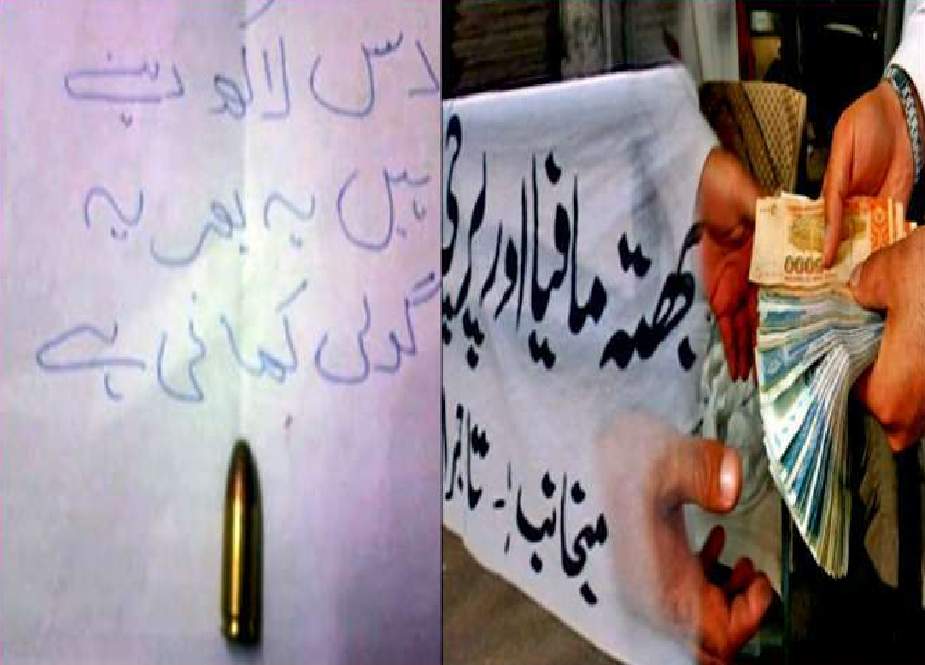 دس لاکھ دینے
ہیں یہ بھر یہ
گولی کھانی ہے
بھتہ مافیا اور پرچی
منجانب:۔ تاجر
5000